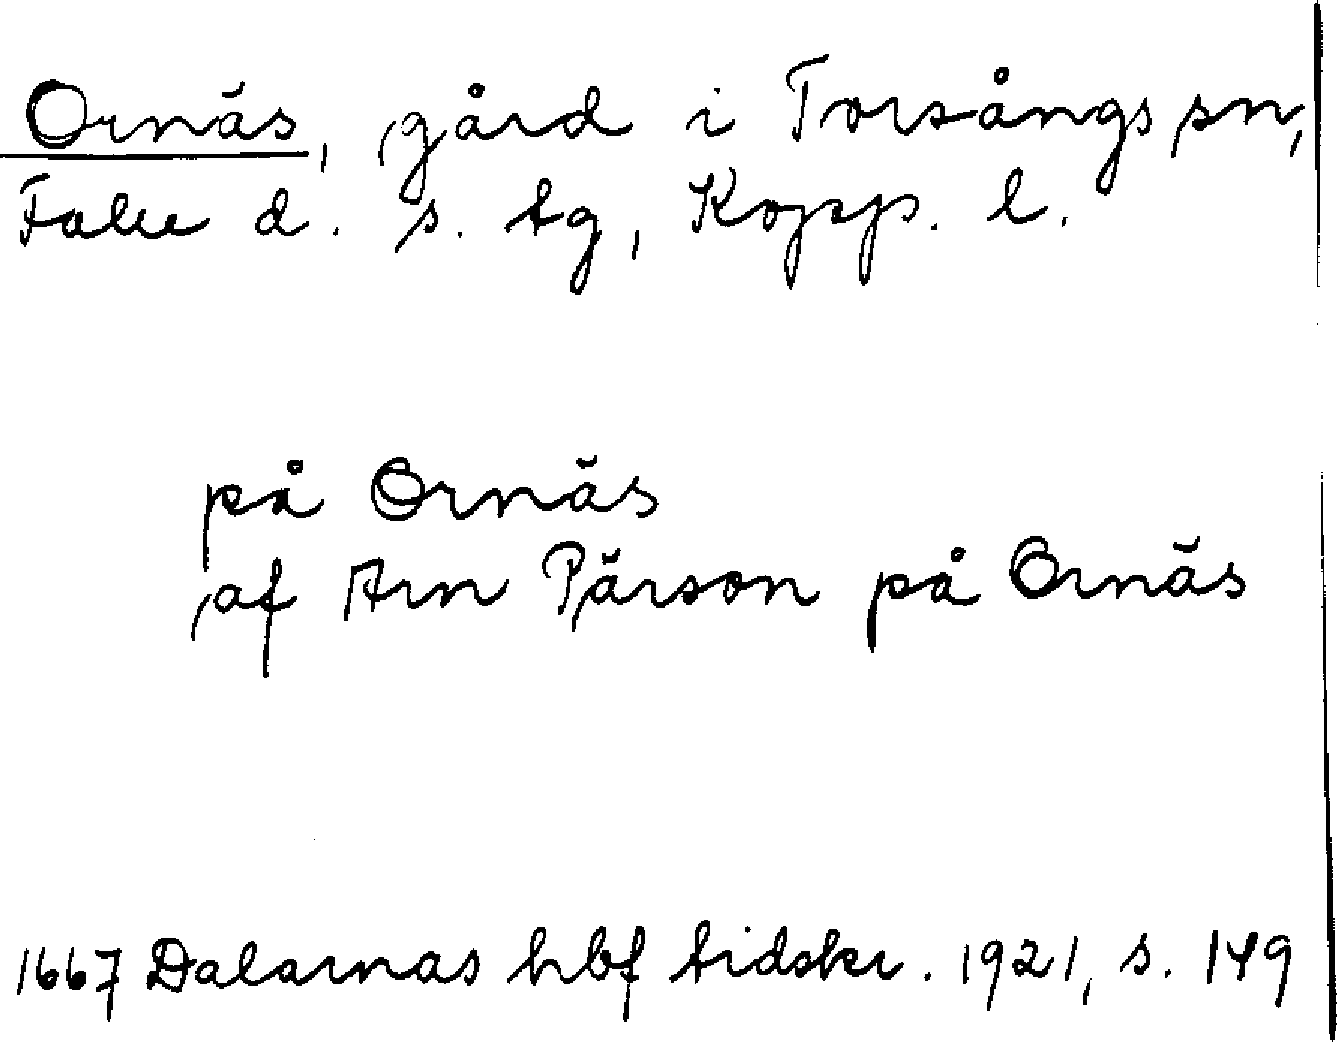 Ornäs, gård i Torsångs sn,
Falu d. s. tg, Kopp. l.
på Ornäs
af Arn Pärson på Ornäs
1667 Dalarnas hbf tidskr. 1921, s. 149